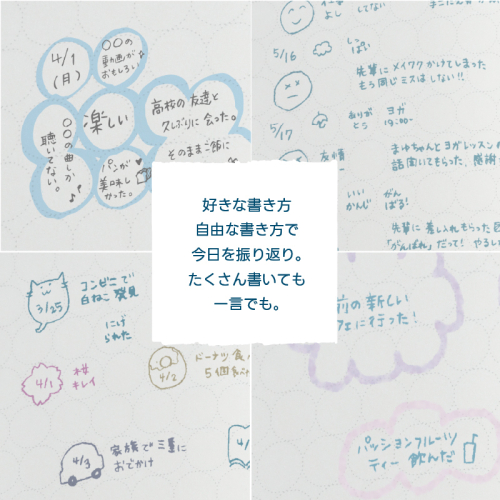 4/1
(月)
〇〇の
動画が
おもしろい
楽しい
〇〇の曲しか
聴いてない。
パンが
美味し
かった。
高校の友達と
久しぶりに会った。
そのままご飯に
よし
してない
5/16
しっ
ぱい
先輩にメイワクかけてしまった
もう同じミスはしない!!
5/17
ありが
とう
ヨガ
19:00-
友情
まゆちゃんとヨガレッスンの
話聞いてもらった。感謝
いい
かんじ
がん
ばる!
先輩に差し入れもらった
「がんばれ」だって!やるし
好きな書き方
自由な書き方で
今日を振り返り。
たくさん書いても
一言でも。
3/25
コンビニで
白ねこ発見
にげ
られた
4/1
桜
キレイ
4/2
ドーナツ食
5個
4/3
家族で三重に
おでかけ
4/
前の新しい
フェに行った!
パッションフルーツ
ティー飲んだ